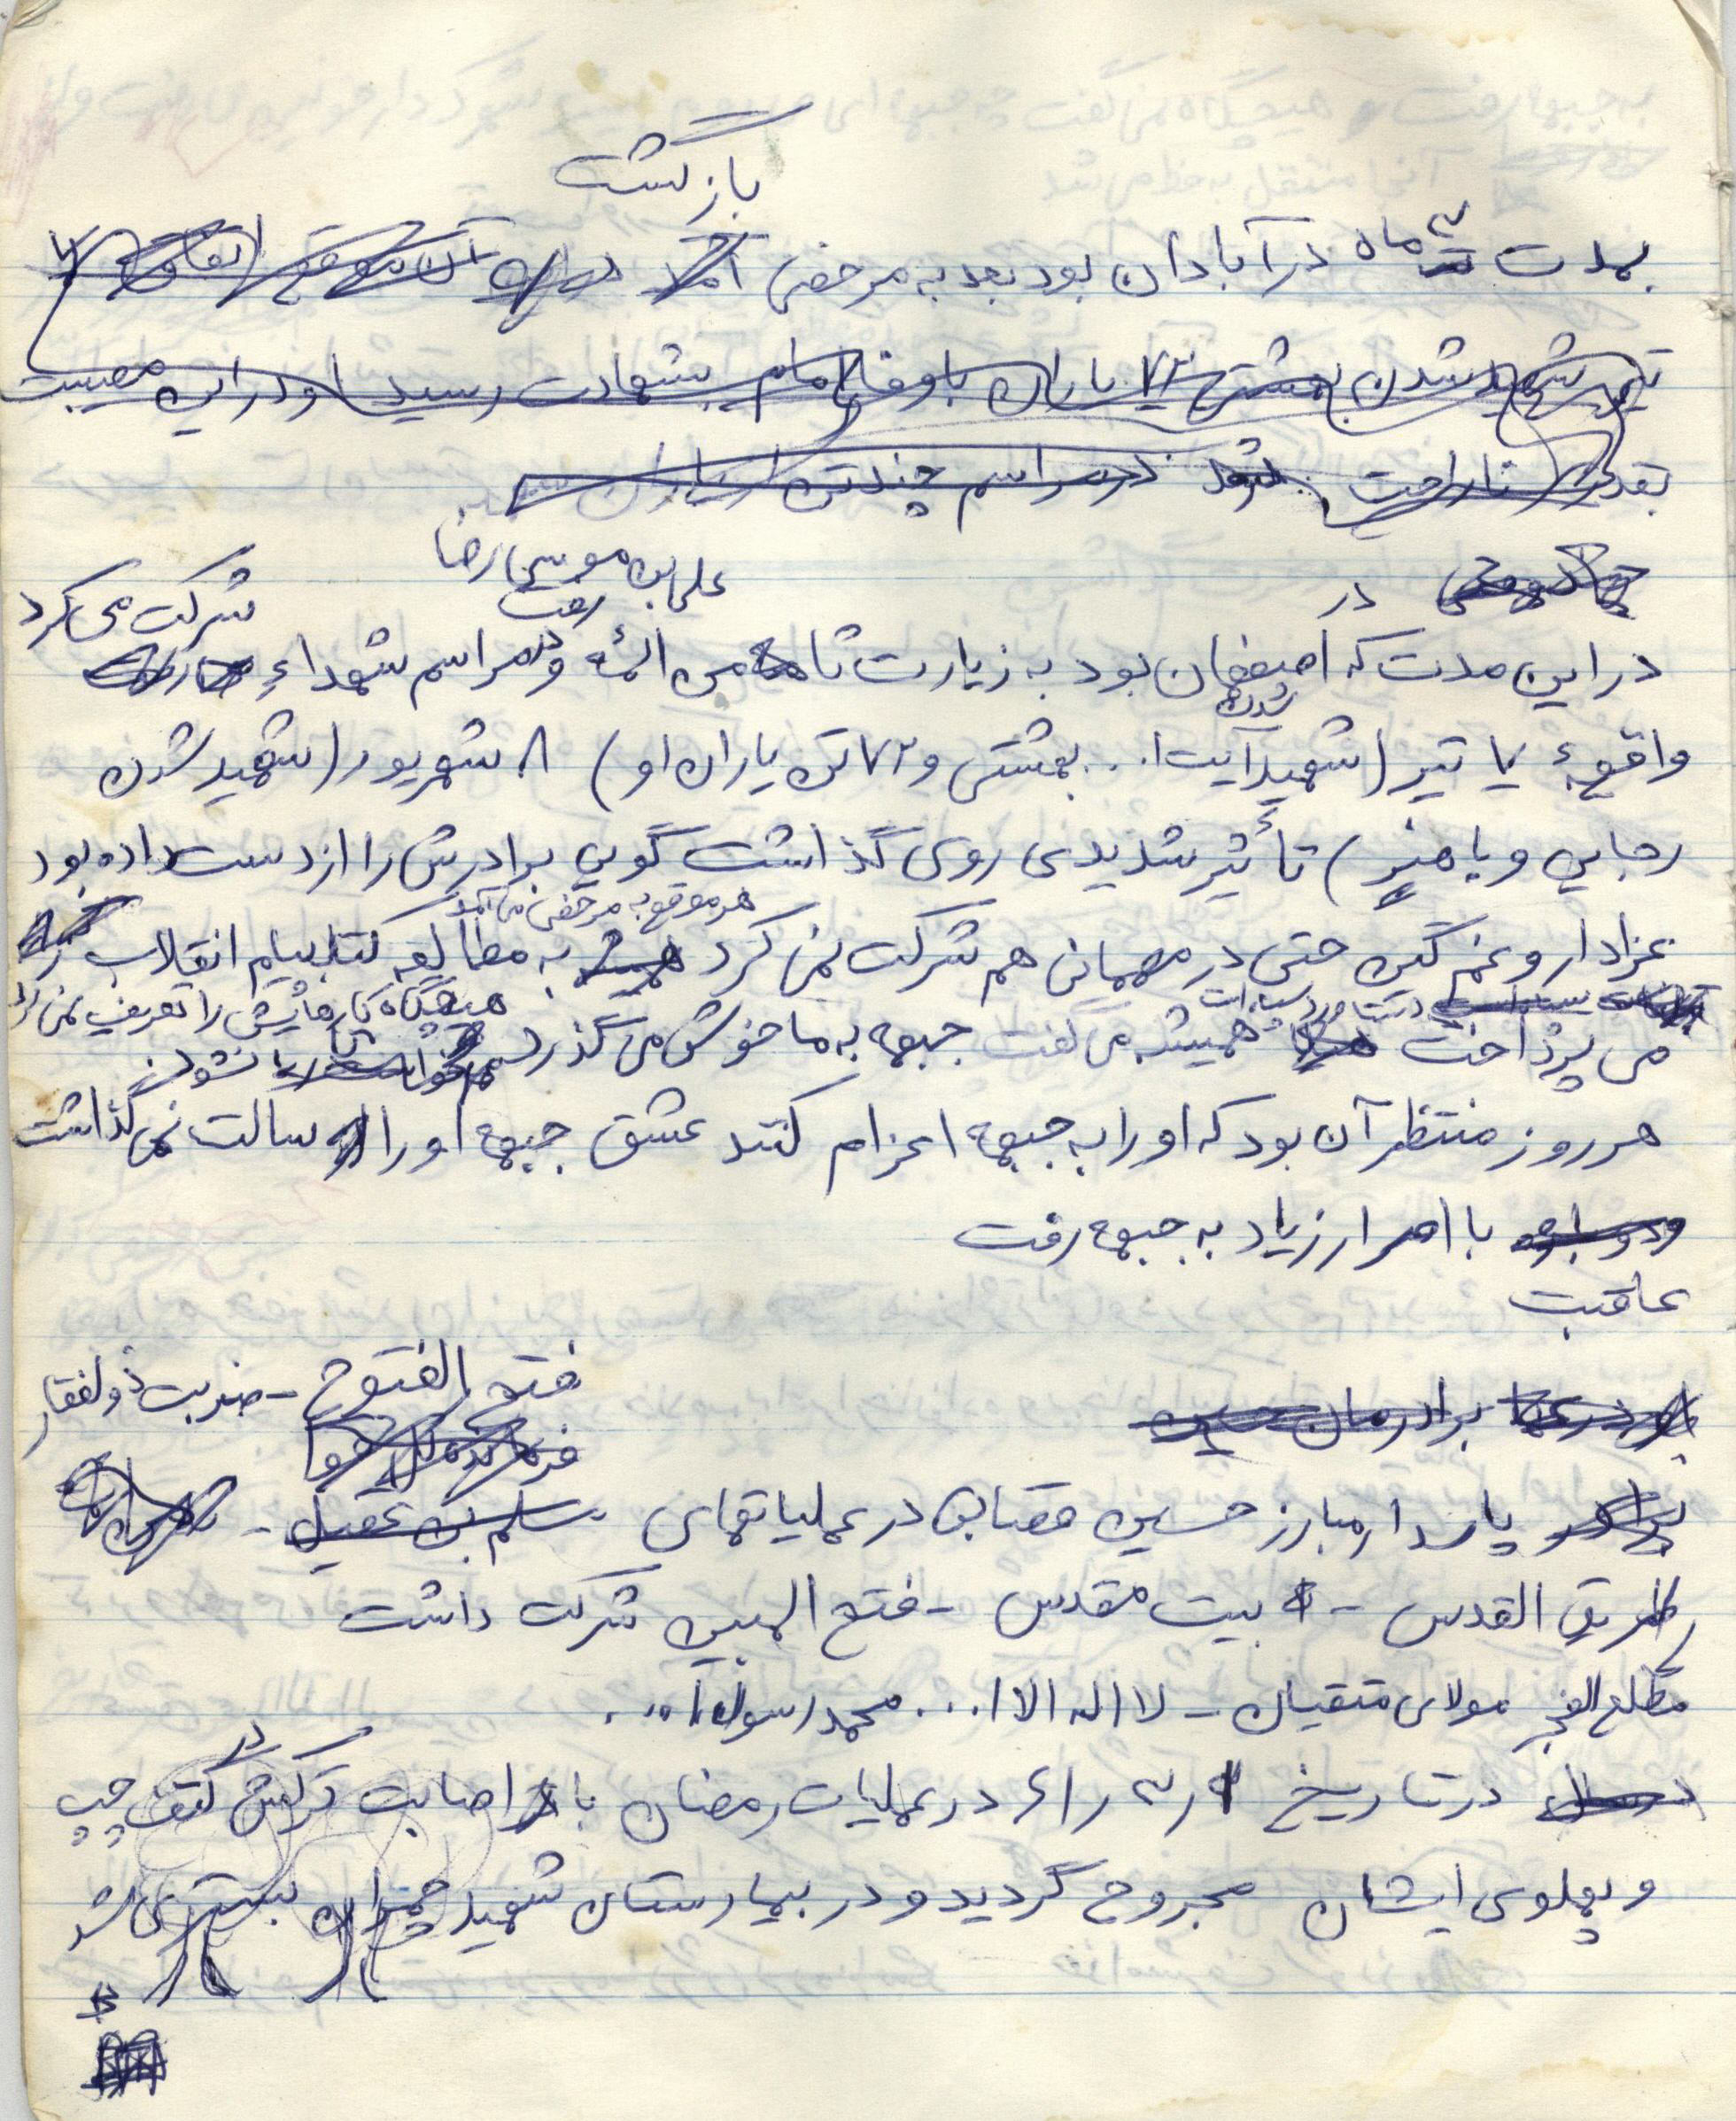 بازگشت
بمدت ۳ ماه در آبادان بود بعد به مرخصی آمد
تیر شهید شدن بهشتی ۷۲ یاران باوفا امام بشهادت رسید او در این مصیبت
بقدری ناراحت شد در مراسم چند تن از یاران
علی بن موسی رضا
در
شرکت می کرد
رفت
در این مدت که اصفهان بود به زیارت ثامن الائمه و در مراسم شهداء
شدن
واقعهٔ ۷ تیر (شهید آیت ا... بهشتی و ۷۲ تن یاران او) ۸ شهریور (شهید شدن
رجایی و باهنر) تأثیر شدیدی روی گذاشت گویی برادرش را از دست داده بود
هر موقع به مرخصی می آمد
عزادار و غم گین حتی در مهمانی هم شرکت نمی کرد به مطالعه کتاب پیام انقلاب
هیچگاه کارهایش را تعریف نمی کرد
می پرداخت همیشه می گفت جبهه به ما خوش می گذرد
نشود
هر روز منتظر آن بود که او را به جبهه اعزام کنند عشق جبهه او را سالت نمی گذاشت
با اصرار زیاد به جبهه رفت
عاقبت
فتح الفتوح - ضربت ذولفقار
برادرمان حسین
پاسدار مبارز حسین قصابی در عملیاتهای مسلم بن عقیل -
طریق القدس - بیت مقدس - فتح المبین شرکت داشت
مطلع الفجر مولای متقیان - لا اله الا ا... محمد رسول ا...
در
در تاریخ ۶۱/۳/ در عملیات رمضان با اصابت ترکش کتف چپ
و پهلوی ایشان مجروح گردید و در بیمارستان شهید چمران بستری شد